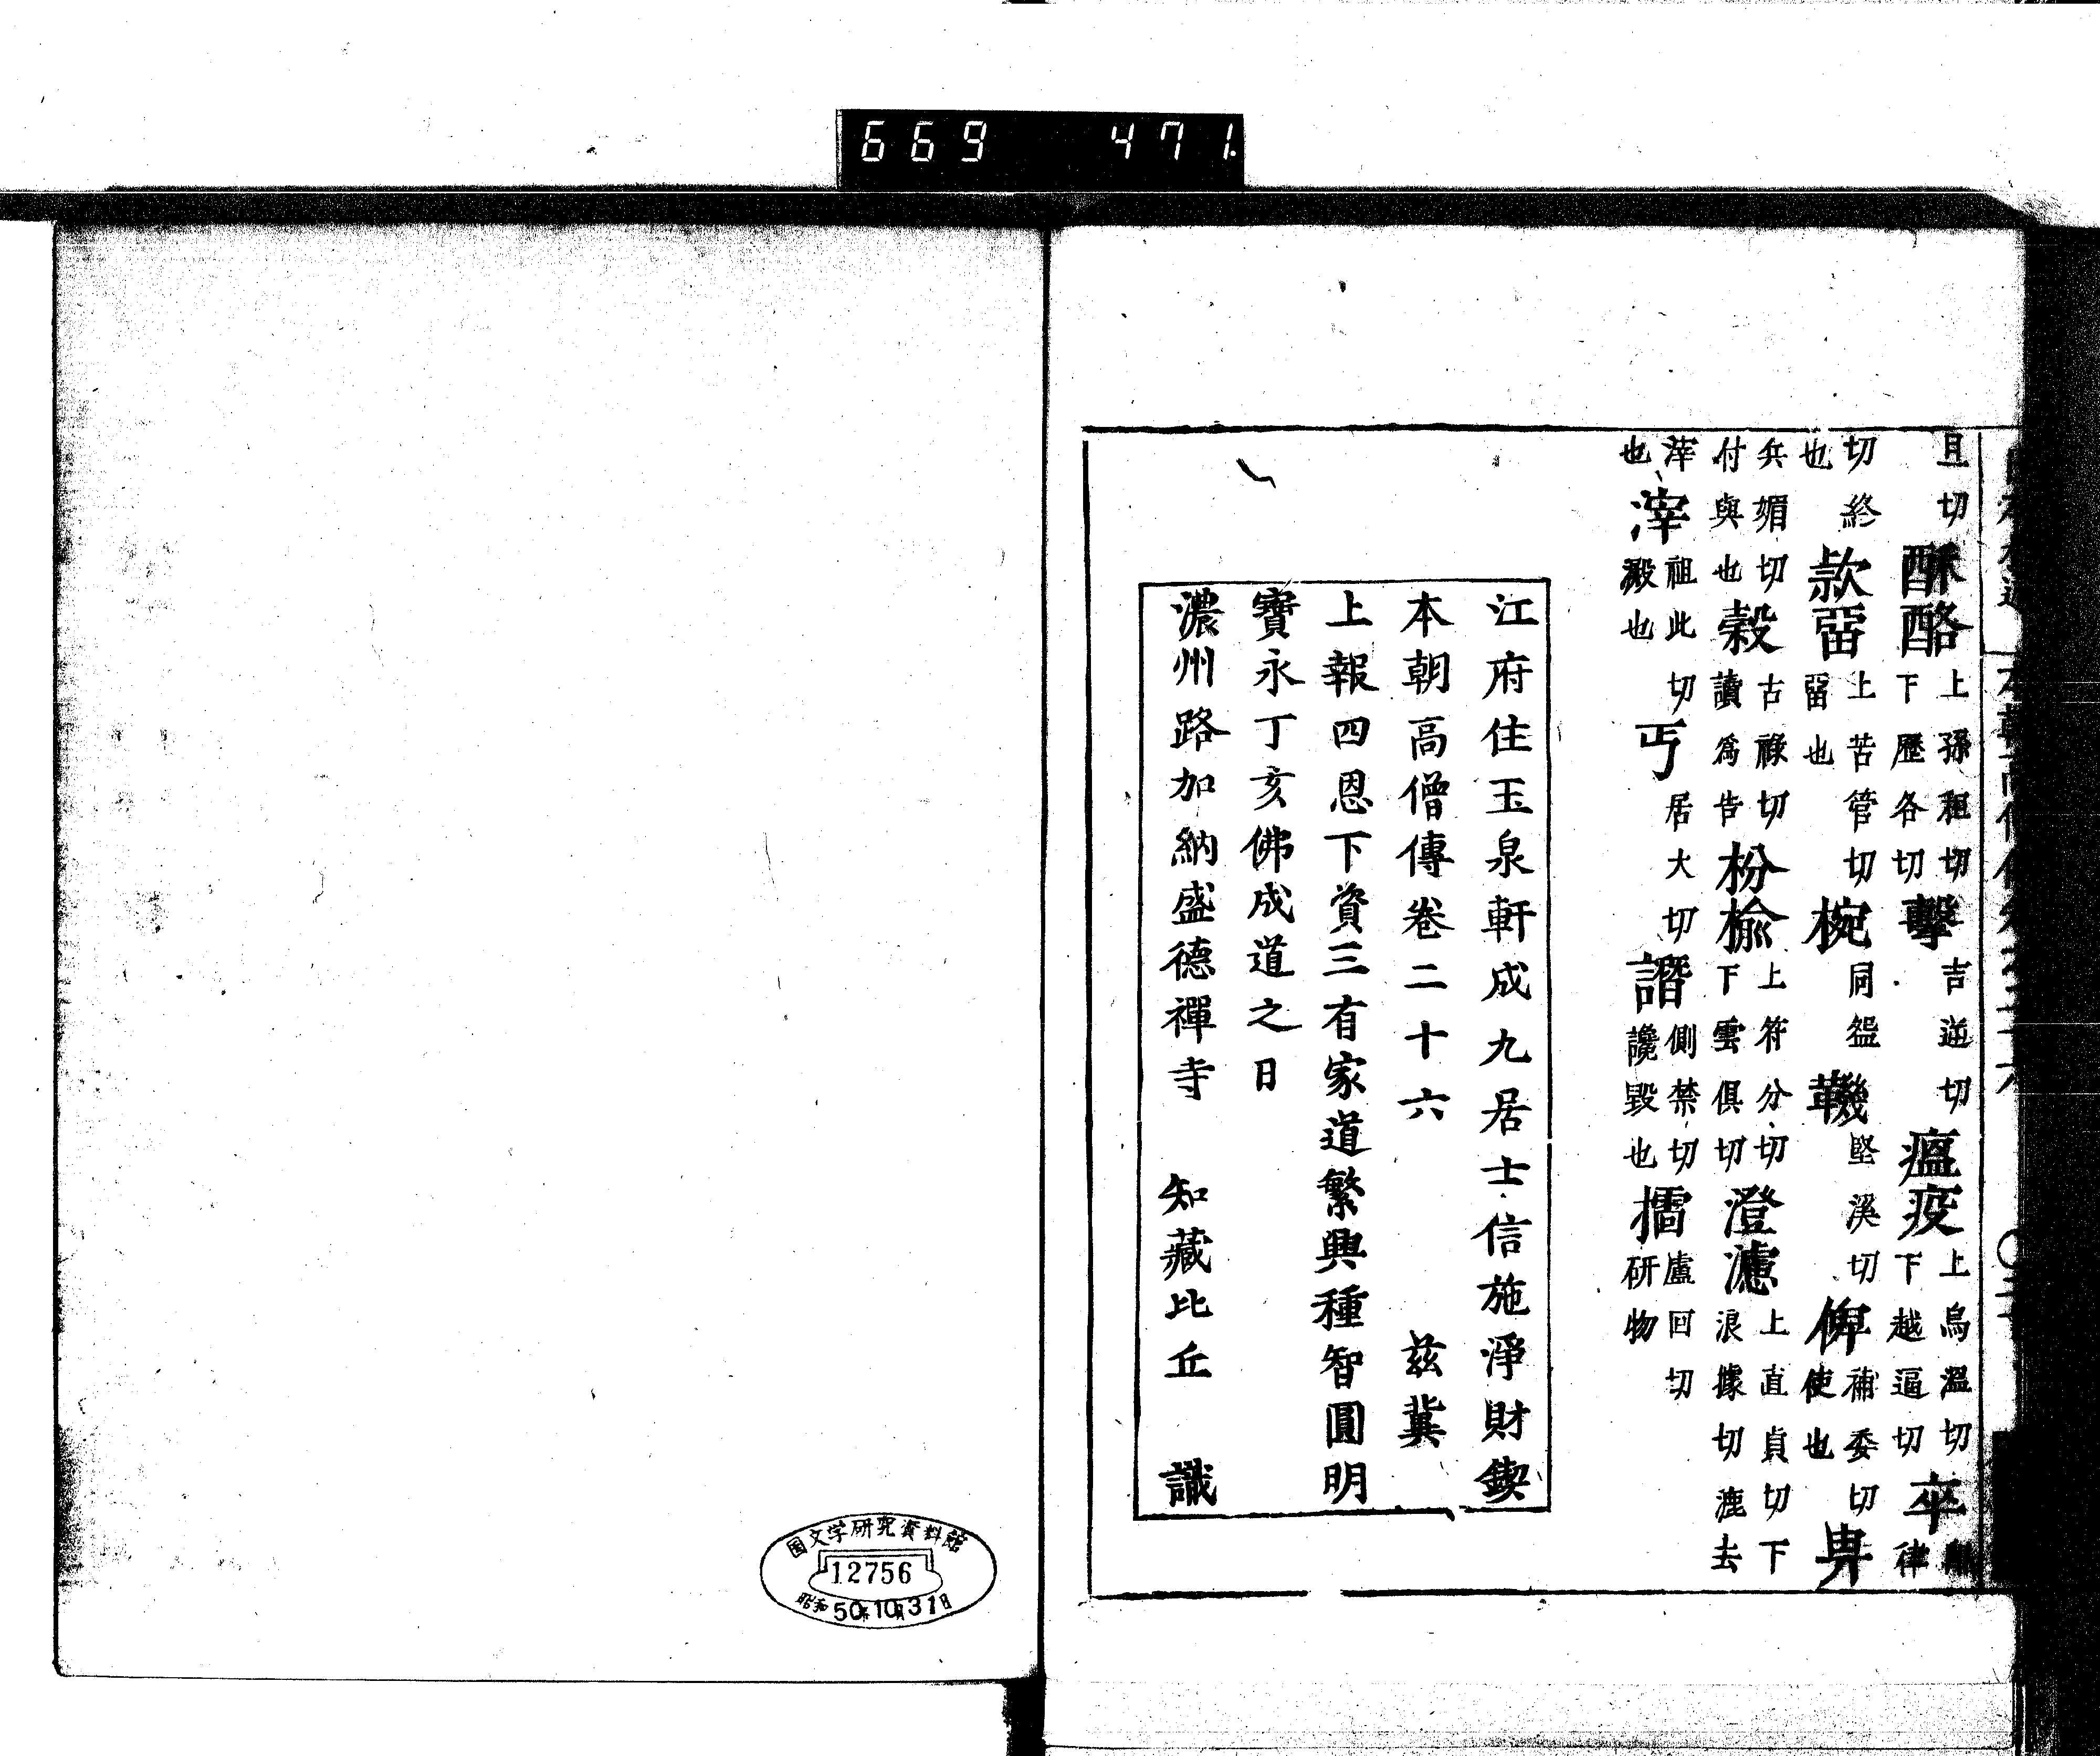 且切酥酪上孫租切下歷各切擊吉逆切瘟疫上烏溫切下越逼切卒律
切終也款畱上苦管切畱也椀同盌鞿堅溪切俾補委切使也畀
兵媚切付與也穀古祿切讀爲告枌榆上符分切下雲俱切澄濾上直貞切下浪據切漉去
滓也滓祖此切澱也丐居大切譖側禁切讒毀也擂盧回切研物
江府住玉泉軒成九居士信施淨財鍥
本朝高僧傳卷二十六 茲冀
上報四恩下資三有家道繁興種智圓明
寶永丁亥佛成道之日
濃州路加納盛德禪寺 知藏比丘 識
669 471
国文学研究資料館
12756
昭和50年10月31日